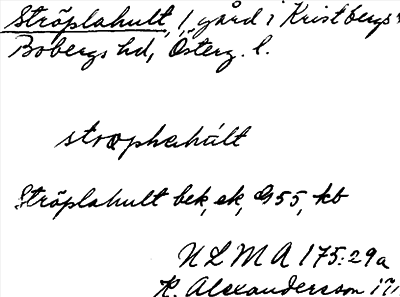 Ströplahult, 1 gård i Kristbergs
Bobergs hd, Österg. l.
Ströplahult bek, ek, G55, kb
NLMA 175:29a
R. Alexandersson